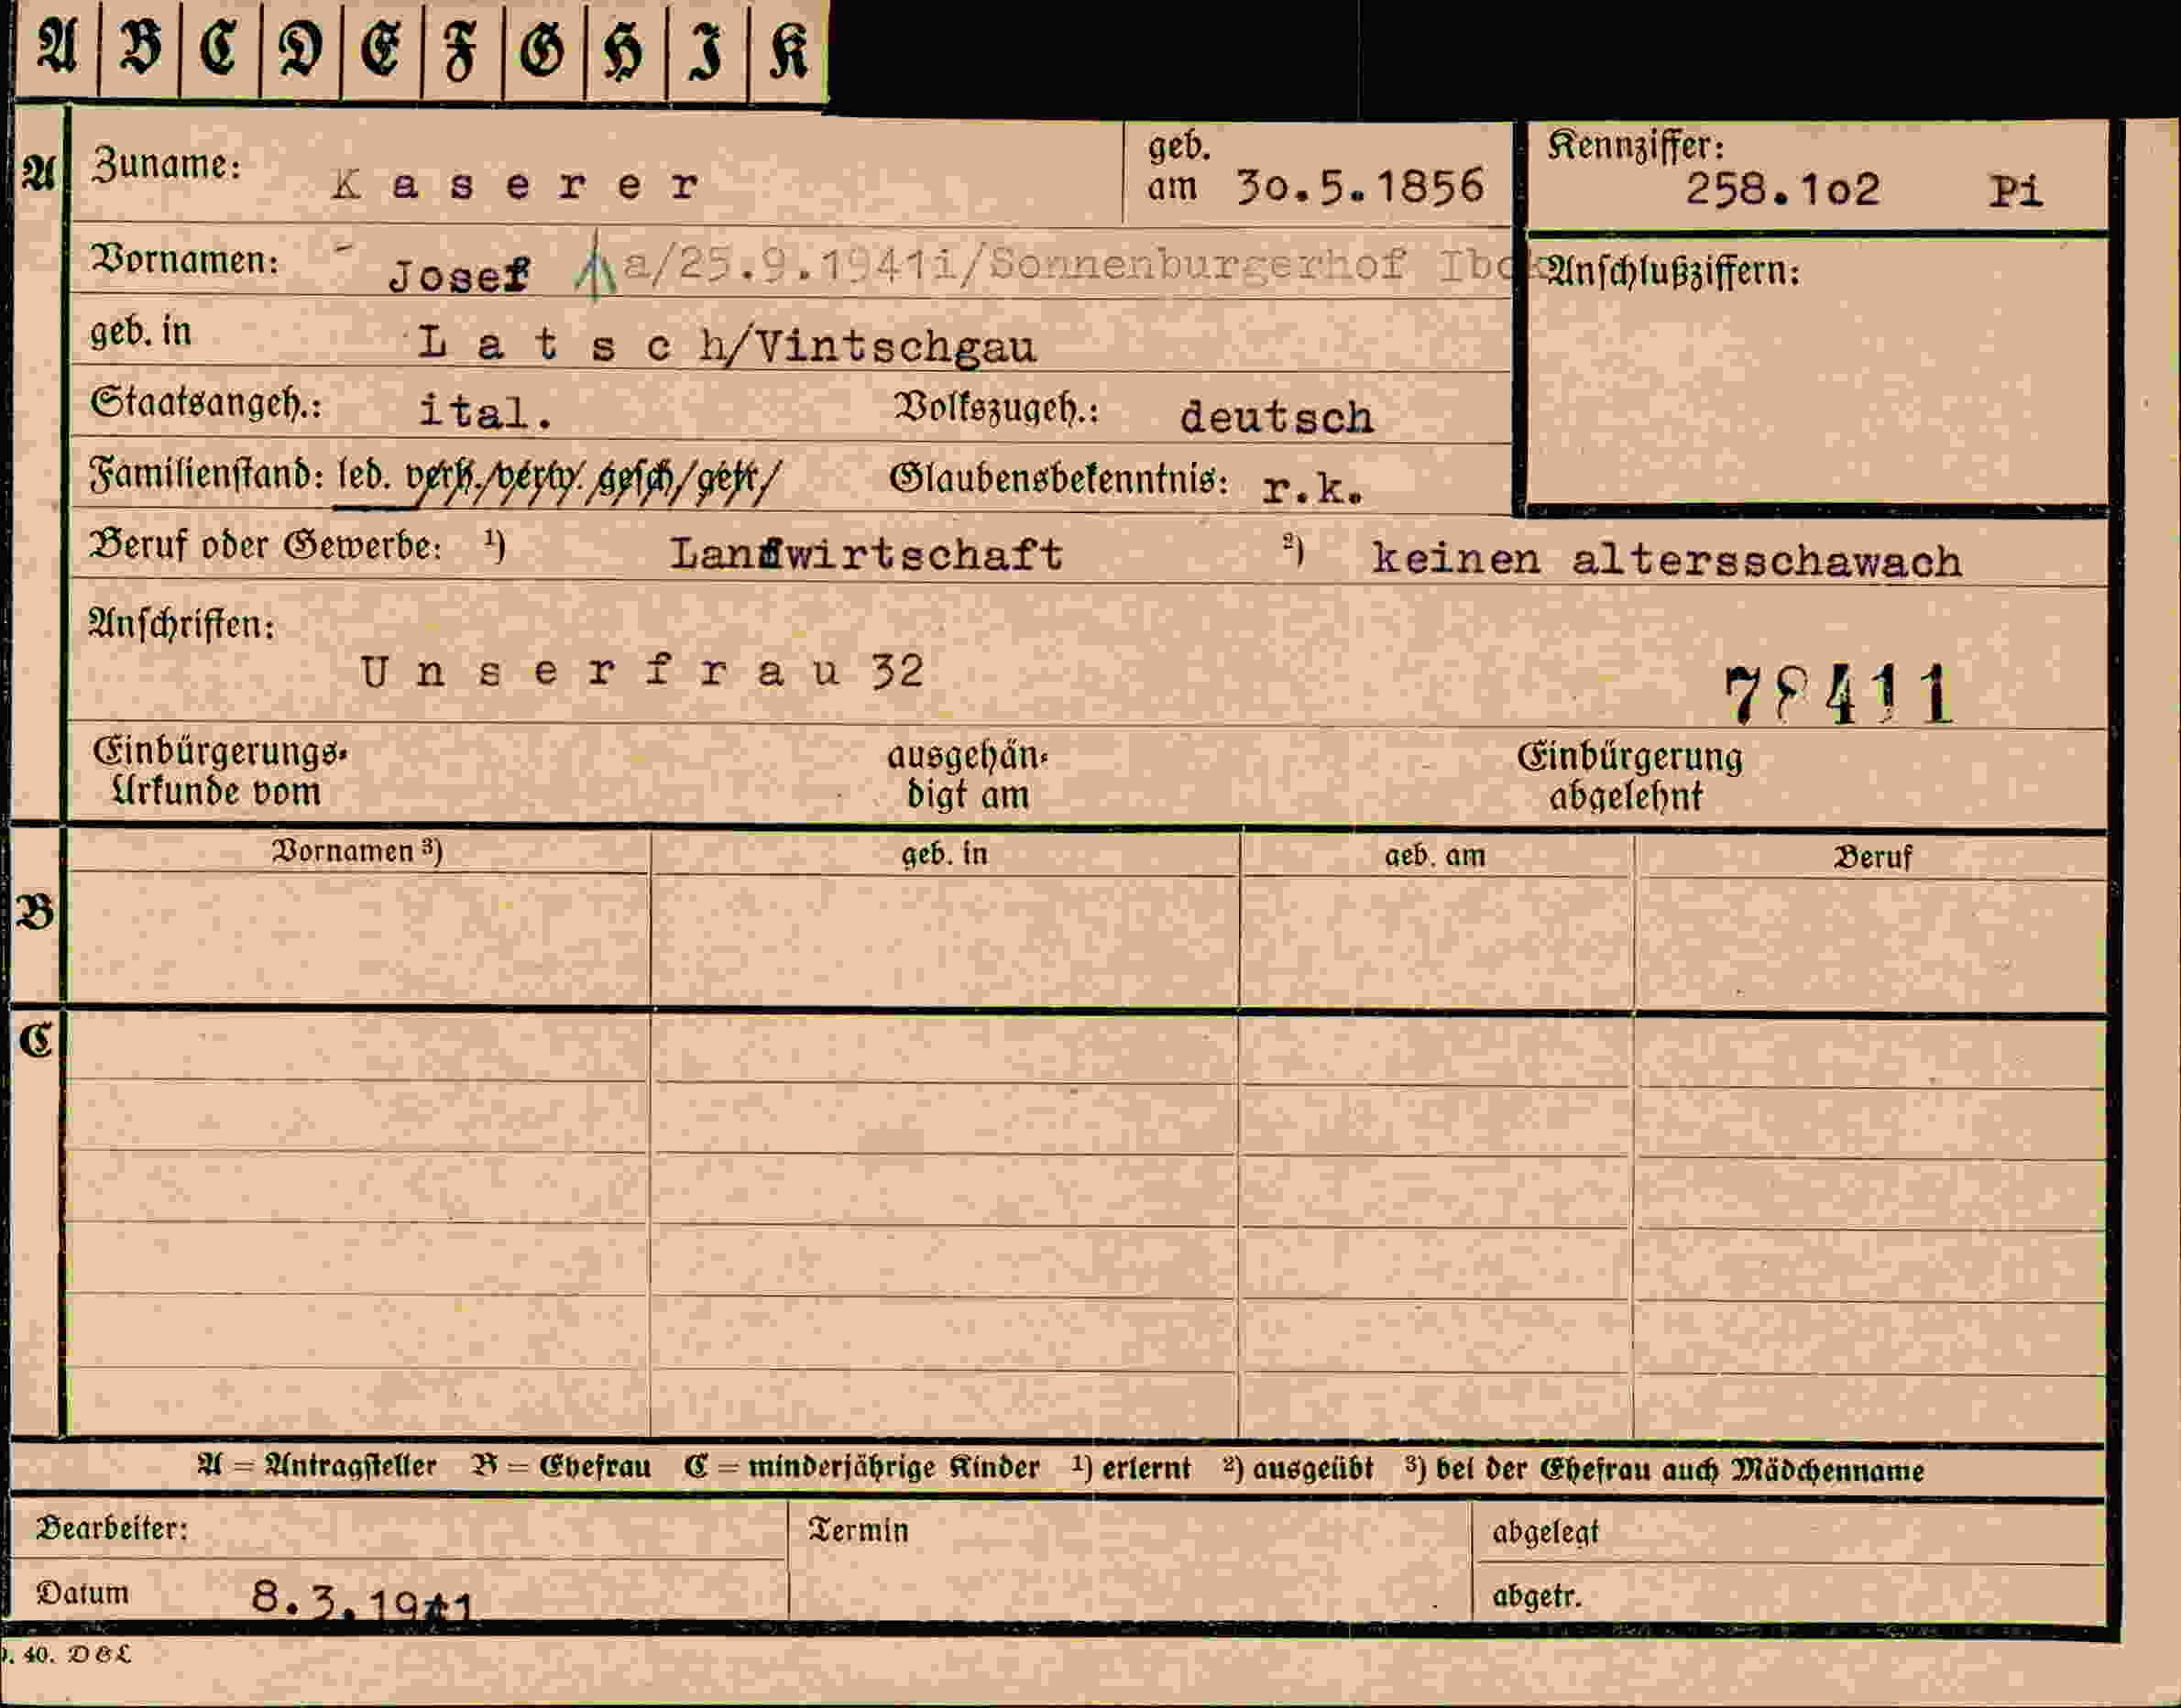 A B C D E F G H I K
A Zuname: Kaserer geb. am 30.5.1856 Kennziffer: 258.1o2 Pi
Vornamen: Josef a/25.9.1941i/Sonnenburgerhof Ibck Anschlußziffern:
geb. in Latsch/Vintschgau
Staatsangeh.: ital. Volkszugeh.: deutsch
Familienstand: led. verh./verw. gesch/getr/ Glaubensbekenntnis: r.k.
Beruf oder Gewerbe: ¹) Landwirtschaft ²) keinen altersschawach
Anschriften:
Unserfrau 32
78411
Einbürgerungs-Urkunde vom ausgehändigt am Einbürgerung abgelehnt
Vornamen ³) geb. in geb. am Beruf
B
C
A = Antragsteller B = Ehefrau C = minderjährige Kinder ¹) erlernt ²) ausgeübt ³) bei der Ehefrau auch Mädchenname
Bearbeiter: Termin abgelegt
Datum 8.3.1941 abgetr.
40. DBL